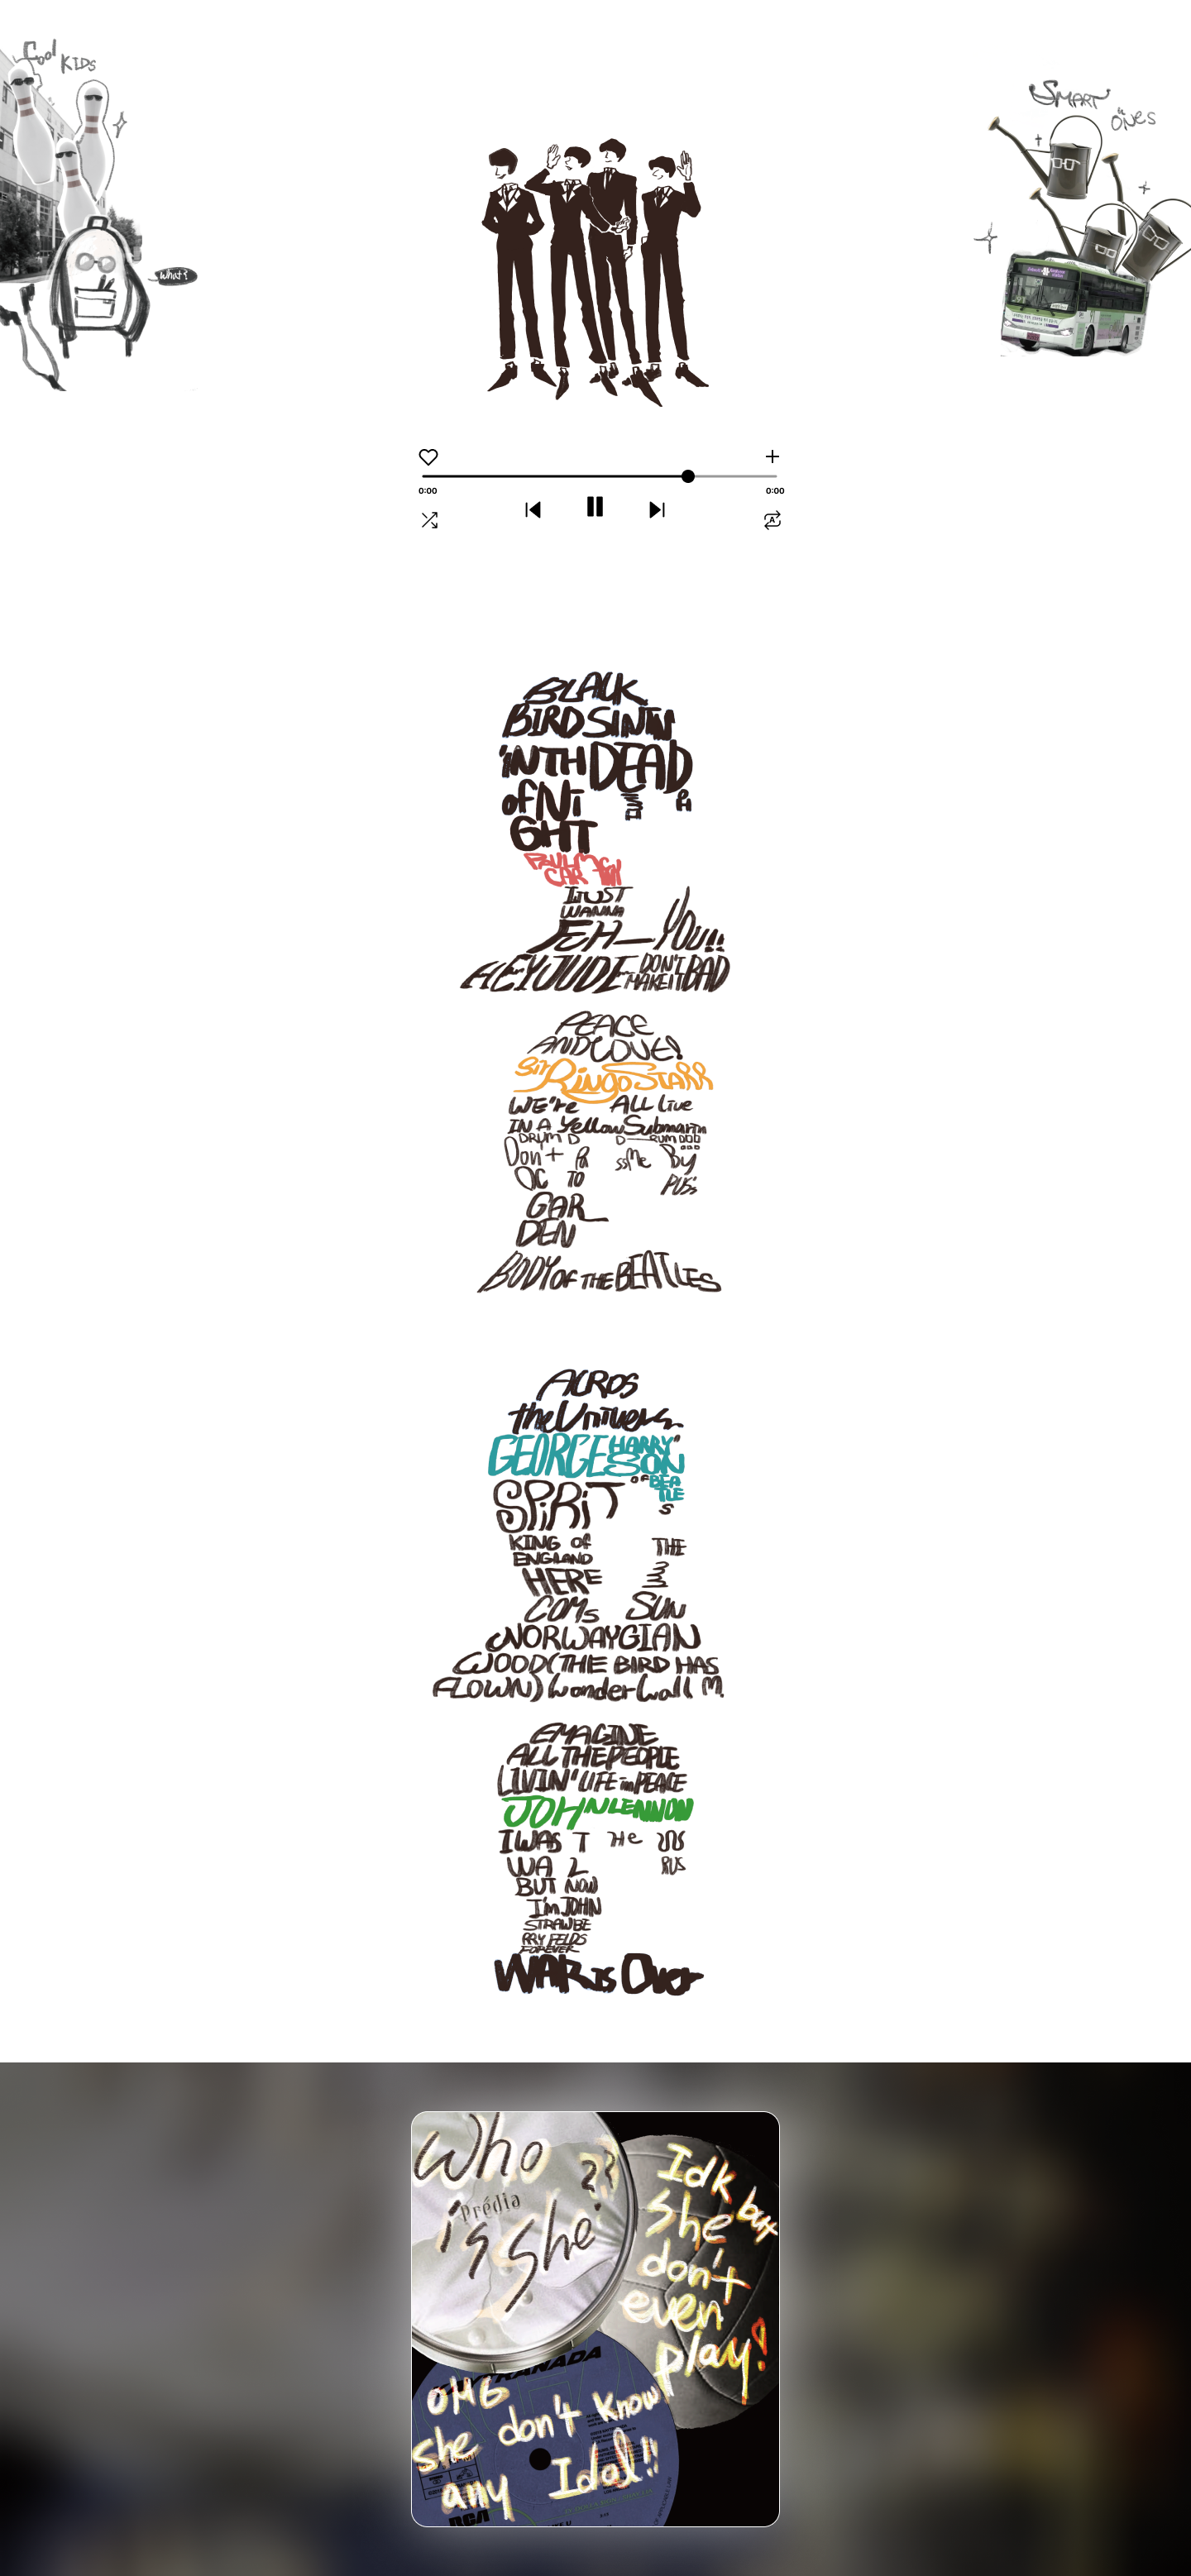 Cool
KIDS
What?
SMART
ONES
0:00
0:00
A
BLACK
BIRD SININ
'IN TH DEAD
of NI
GHT
I JUST
WANNA
FEH—YOU!!
HEY JUDE DON'T
MAKE IT BAD
PEACE
AND LOVE!
Sir RINGO STARR
WE're ALL Live
IN A Yellow Submarin
DRUM D D RUM DOO
Don't Pa ssMe By
OC TO PUS's
GAR
DEN
BODY OF THE BEATLES
ACROS
the Univers
GEORGE HARRY
SON
OF BEA
TLE
S
SPiRiT
KING OF
ENGLAND
THE
HERE
COMs SUN
NORWAYGIAN
WOOD (THE BIRD HAS
FLOWN) Wonder Wall M.
EMAGINE
ALL THE PEOPLE
LIVIN' LIFE in PEACE
JOHN LENNON
I WAS T He
WA L RUS
BUT NOW
I'm JOHN
STRAWBE
RRY FELDS
FOREVER
WAR is Over
Who
is she??
Prédia
Idk but
she
don't
even
play!
OMG
she don't know
any Idol!!
RCA